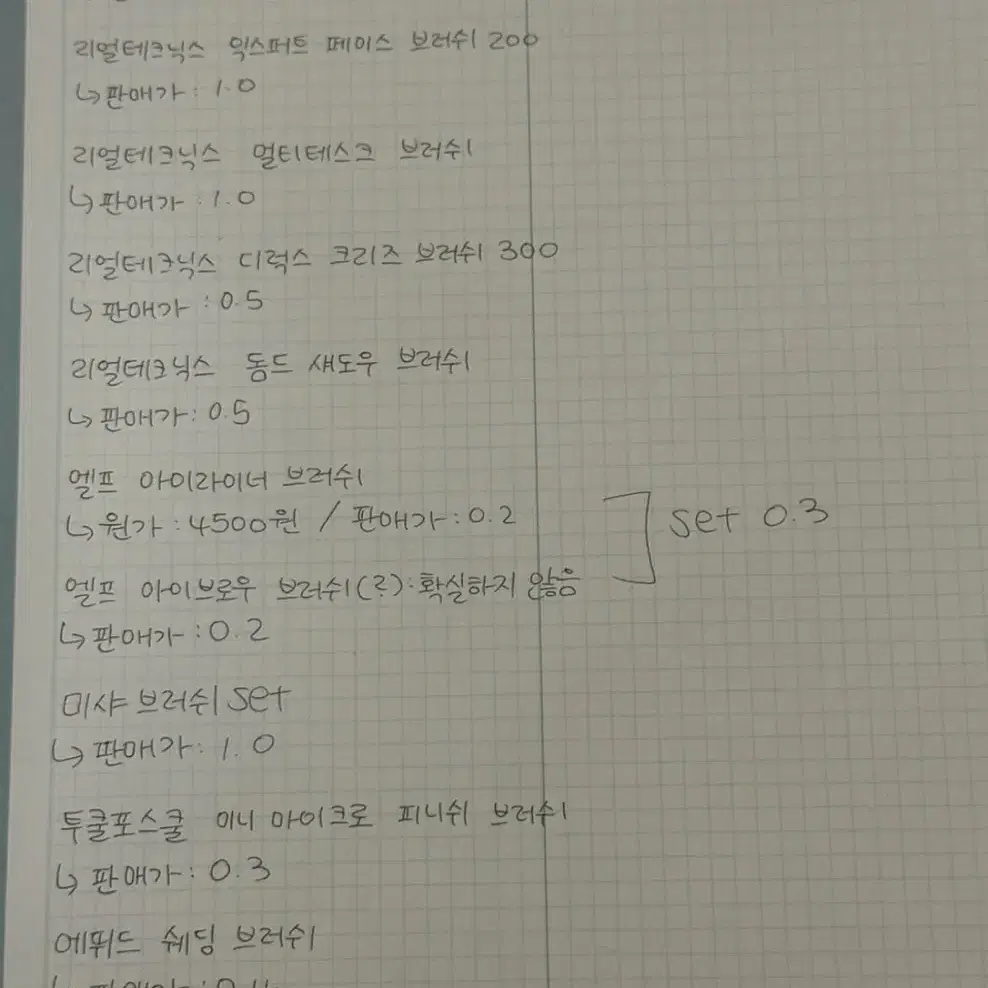 리얼테크닉스 익스퍼트 페이스 브러쉬 200
↳ 판매가 : 1.0
리얼테크닉스 멀티테스크 브러쉬
↳ 판매가 : 1.0
리얼테크닉스 디럭스 크리즈 브러쉬 300
↳ 판매가 : 0.5
리얼테크닉스 동드 섀도우 브러쉬
↳ 판매가 : 0.5
엘프 아이라이너 브러쉬
↳ 원가 : 4500원 / 판매가 : 0.2
set 0.3
엘프 아이브로우 브러쉬(?) : 확실하지 않음
↳ 판매가 : 0.2
미샤 브러쉬 set
↳ 판매가 : 1.0
투쿨포스쿨 미니 마이크로 피니쉬 브러쉬
↳ 판매가 : 0.3
에뛰드 쉐딩 브러쉬
↳ 판매가 :